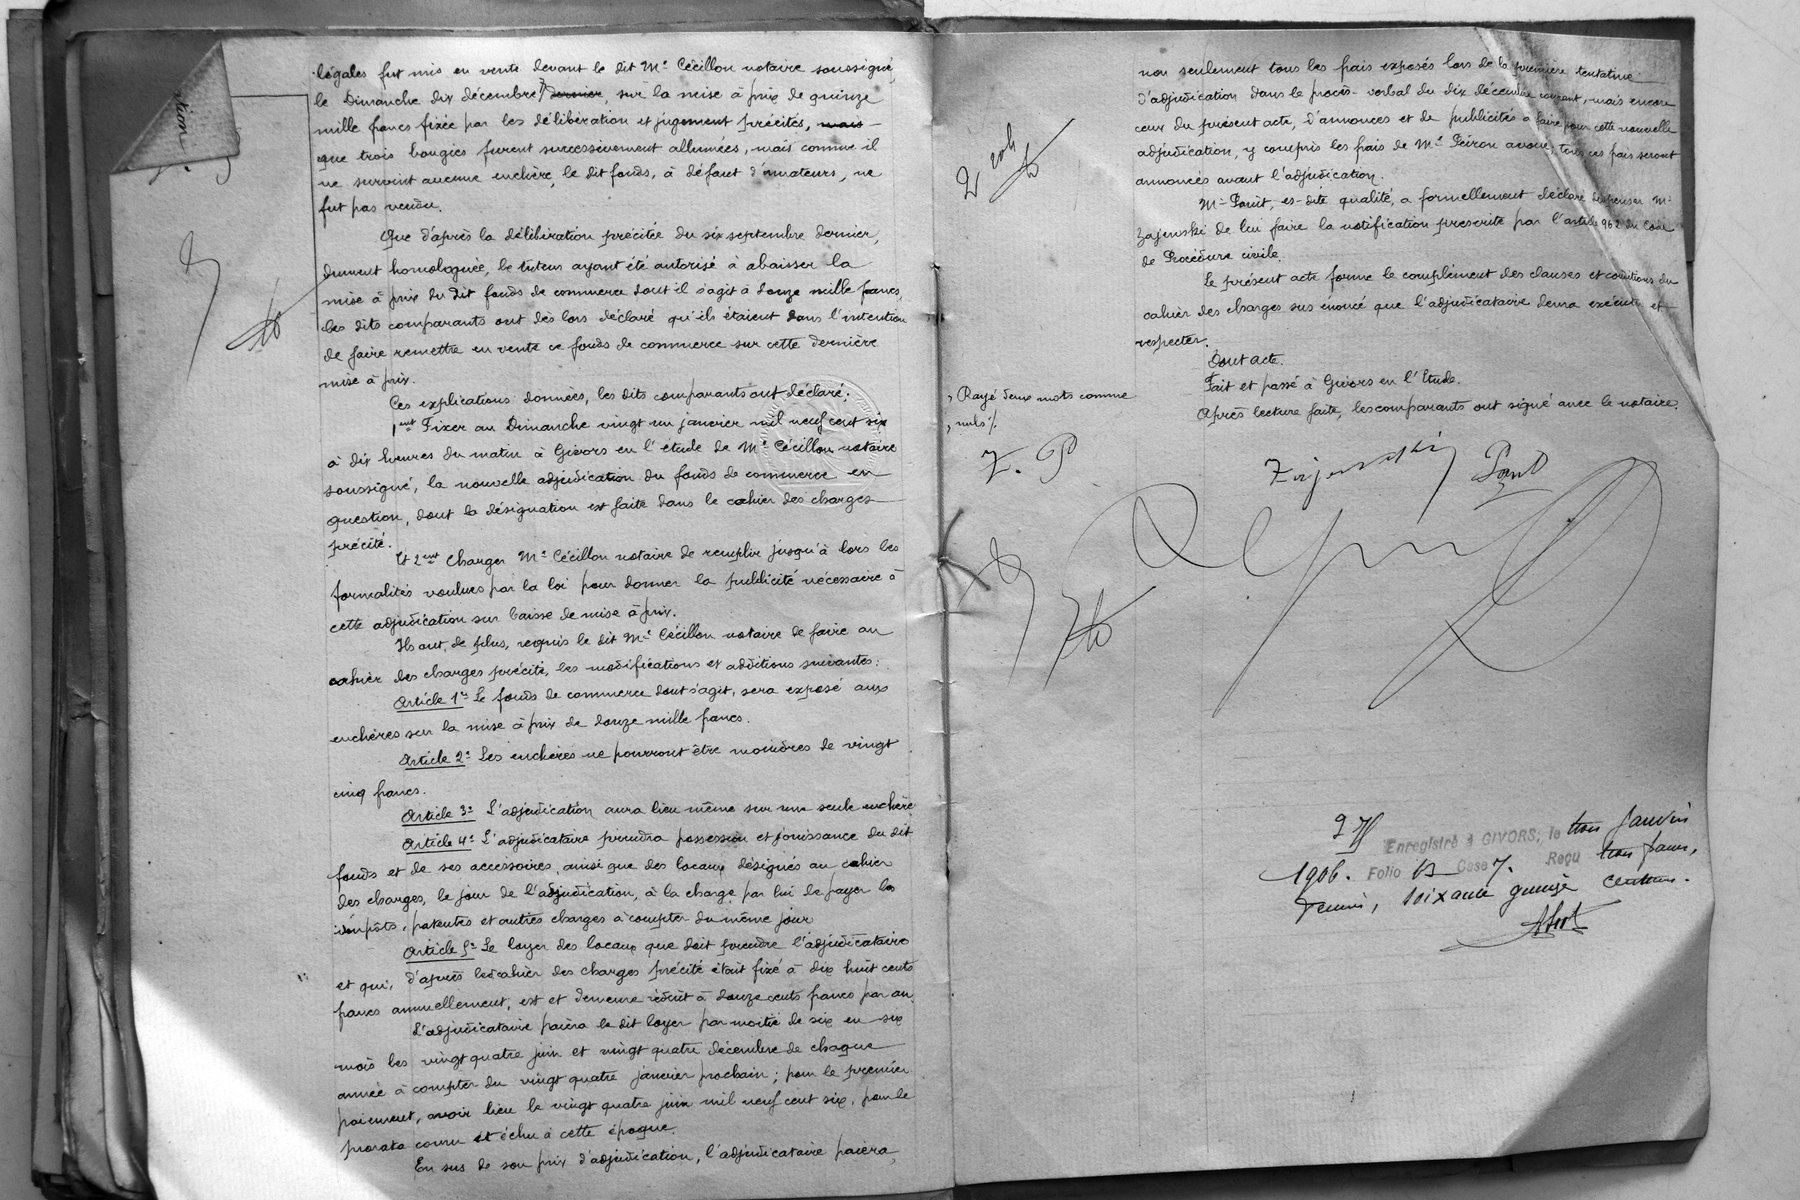 légales fut mis en vente devant le dit Me Cécillon notaire soussigné,
le Dimanche dix décembre dernier, sur la mise à prix de quinze
mille francs fixée par les délibération et jugement précités, mais
que trois bougies furent successivement allumées, mais comme il
ne survint aucune enchère, le dit fonds, à défaut d'amateurs, ne
fut pas vendu.
Que d'après la délibération précitée du six septembre dernier,
dûment homologuée, le tuteur ayant été autorisé à abaisser la
mise à prix du dit fonds de commerce dont il s'agit à douze mille francs,
les dits comparants ont dès lors déclaré qu'ils étaient dans l'intention
de faire remettre en vente ce fonds de commerce sur cette dernière
mise à prix.
Ces explications données, les dits comparants ont déclaré:
1ent Fixer au Dimanche vingt un janvier mil neuf cent six
à dix heures du matin à Givors en l'étude de Me Cécillon notaire
soussigné, la nouvelle adjudication du fonds de commerce en
question, dont la désignation est faite dans le cahier des charges
précité.
Et 2ent Charger Me Cécillon notaire de remplir jusqu'à lors les
formalités voulues par la loi pour donner la publicité nécessaire à
cette adjudication sur baisse de mise à prix.
Ils ont, de plus, requis le dit Me Cécillon notaire de faire au
cahier des charges précité, les modifications et additions suivantes:
Article 1er Le fonds de commerce dont s'agit, sera exposé aux
enchères sur la mise à prix de douze mille francs.
Article 2e Les enchères ne pourront être moindres de vingt
cinq francs.
Article 3e L'adjudication aura lieu même sur une seule enchère
Article 4e L'adjudicataire prendra possession et jouissance du dit
fonds et de ses accessoires, ainsi que des locaux désignés au cahier
des charges, le jour de l'adjudication, à la charge par lui de payer les
impôts, patentes et autres charges à compter du même jour
Article 5e Le loyer des locaux que doit prendre l'adjudicataire
et qui, d'après le cahier des charges précité était fixé à dix huit cents
francs annuellement, est et demeure réduit à douze cents francs par an.
L'adjudicataire paiera le dit loyer par moitié de six en six
mois les vingt quatre juin et vingt quatre décembre de chaque
année à compter du vingt quatre janvier prochain; pour le premier
paiement, avoir lieu le vingt quatre juin mil neuf cent six, pour le
prorata couru et échu à cette époque.
En sus de son prix d'adjudication, l'adjudicataire paiera,
non seulement tous les frais exposés lors de la première tentative
d'adjudication dans le procès-verbal du dix décembre courant, mais encore
ceux du présent acte, d'annonces et de publicités à faire pour cette nouvelle
adjudication, y compris les frais de Me Peiron avoué, tous ces frais seront
annoncés avant l'adjudication.
Mr Ponit, es-dite qualité, a formellement déclaré dispenser Mr
Zajewski de lui faire la notification prescrite par l'article 962 du Code
de Procédure civile.
Le présent acte forme le complément des clauses et conditions du
cahier des charges sus énoncé que l'adjudicataire devra exécuter et
respecter.
Dont acte.
Fait et passé à Givors en l'Etude.
Après lecture faite, les comparants ont signé avec le notaire.
Rayé deux mots comme
nuls
Z. P
Enregistré à GIVORS, le trois Janvier
1906. Folio 13 Case 7. Reçu trois francs,
soixante quinze centimes.